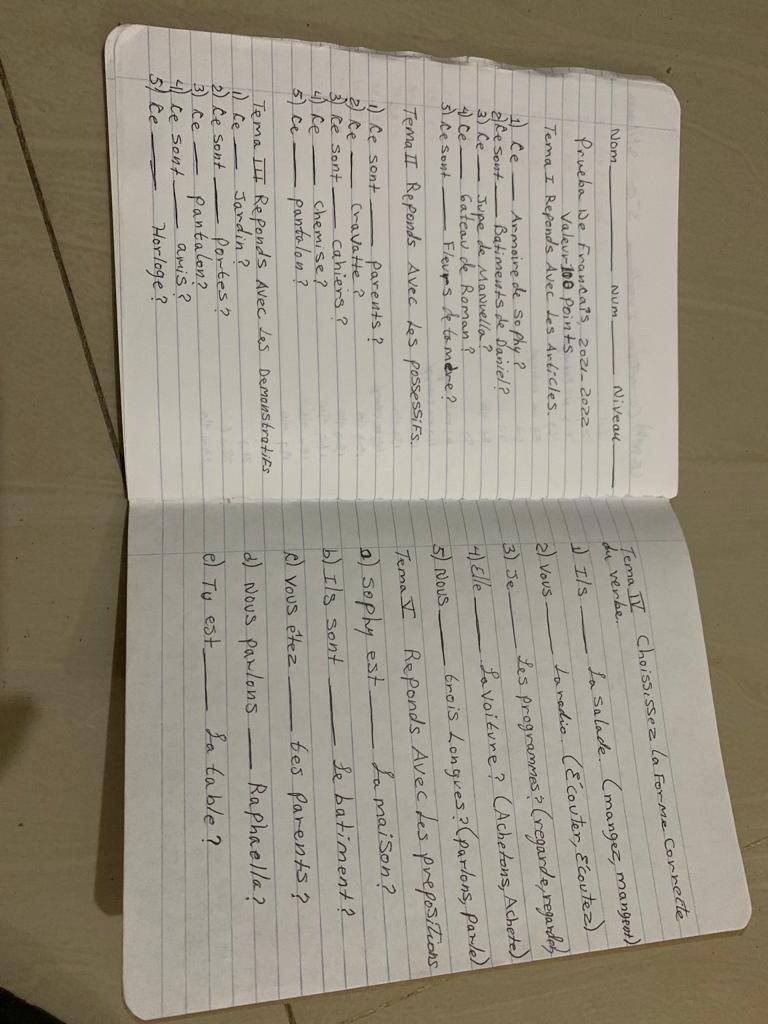 Nom_______ Num_____ Niveau_____
Prueba De Francais, 2021-2022
Valeur 100 points
Tema I Reponds Avec Les Articles.
1) Ce ___ Armoire de Sophy?
2) Ce sont ___ Batiments de Daniel?
3) Ce ___ Jupe de Manuella?
4) Ce ___ Gateau de Roman?
5) Ce sont ___ Fleurs de ta mère?
Tema II Reponds Avec Les possessifs.
1) Ce sont ___ parents?
2) Ce ___ Cravatte?
3) Ce sont ___ cahiers?
4) Ce ___ chemise?
5) Ce ___ pantalon?
Tema III Reponds Avec Les Demonstratifs
1) Ce ___ Jardin?
2) Ce sont ___ portes?
3) Ce ___ pantalon?
4) Ce sont ___ amis?
5) Ce ___ Horloge?
Tema IV Choississez la Forme Correcte
du verbe.
1) Ils ___ La salade. (mangez, mangent)
2) Vous ___ La radio. (Écouter, Écoutez)
3) Je ___ Les programmes? (regarde, regardes)
4) Elle ___ La voiture? (Achetons, Achete)
5) Nous ___ trois Longues? (parlons, parle)
Tema V Reponds Avec Les prepositions
a) Sophy est ___ La maison?
b) Ils sont ___ Le batiment?
c) Vous étez ___ tes parents?
d) Nous parlons ___ Raphaella?
e) Tu est ___ La table?